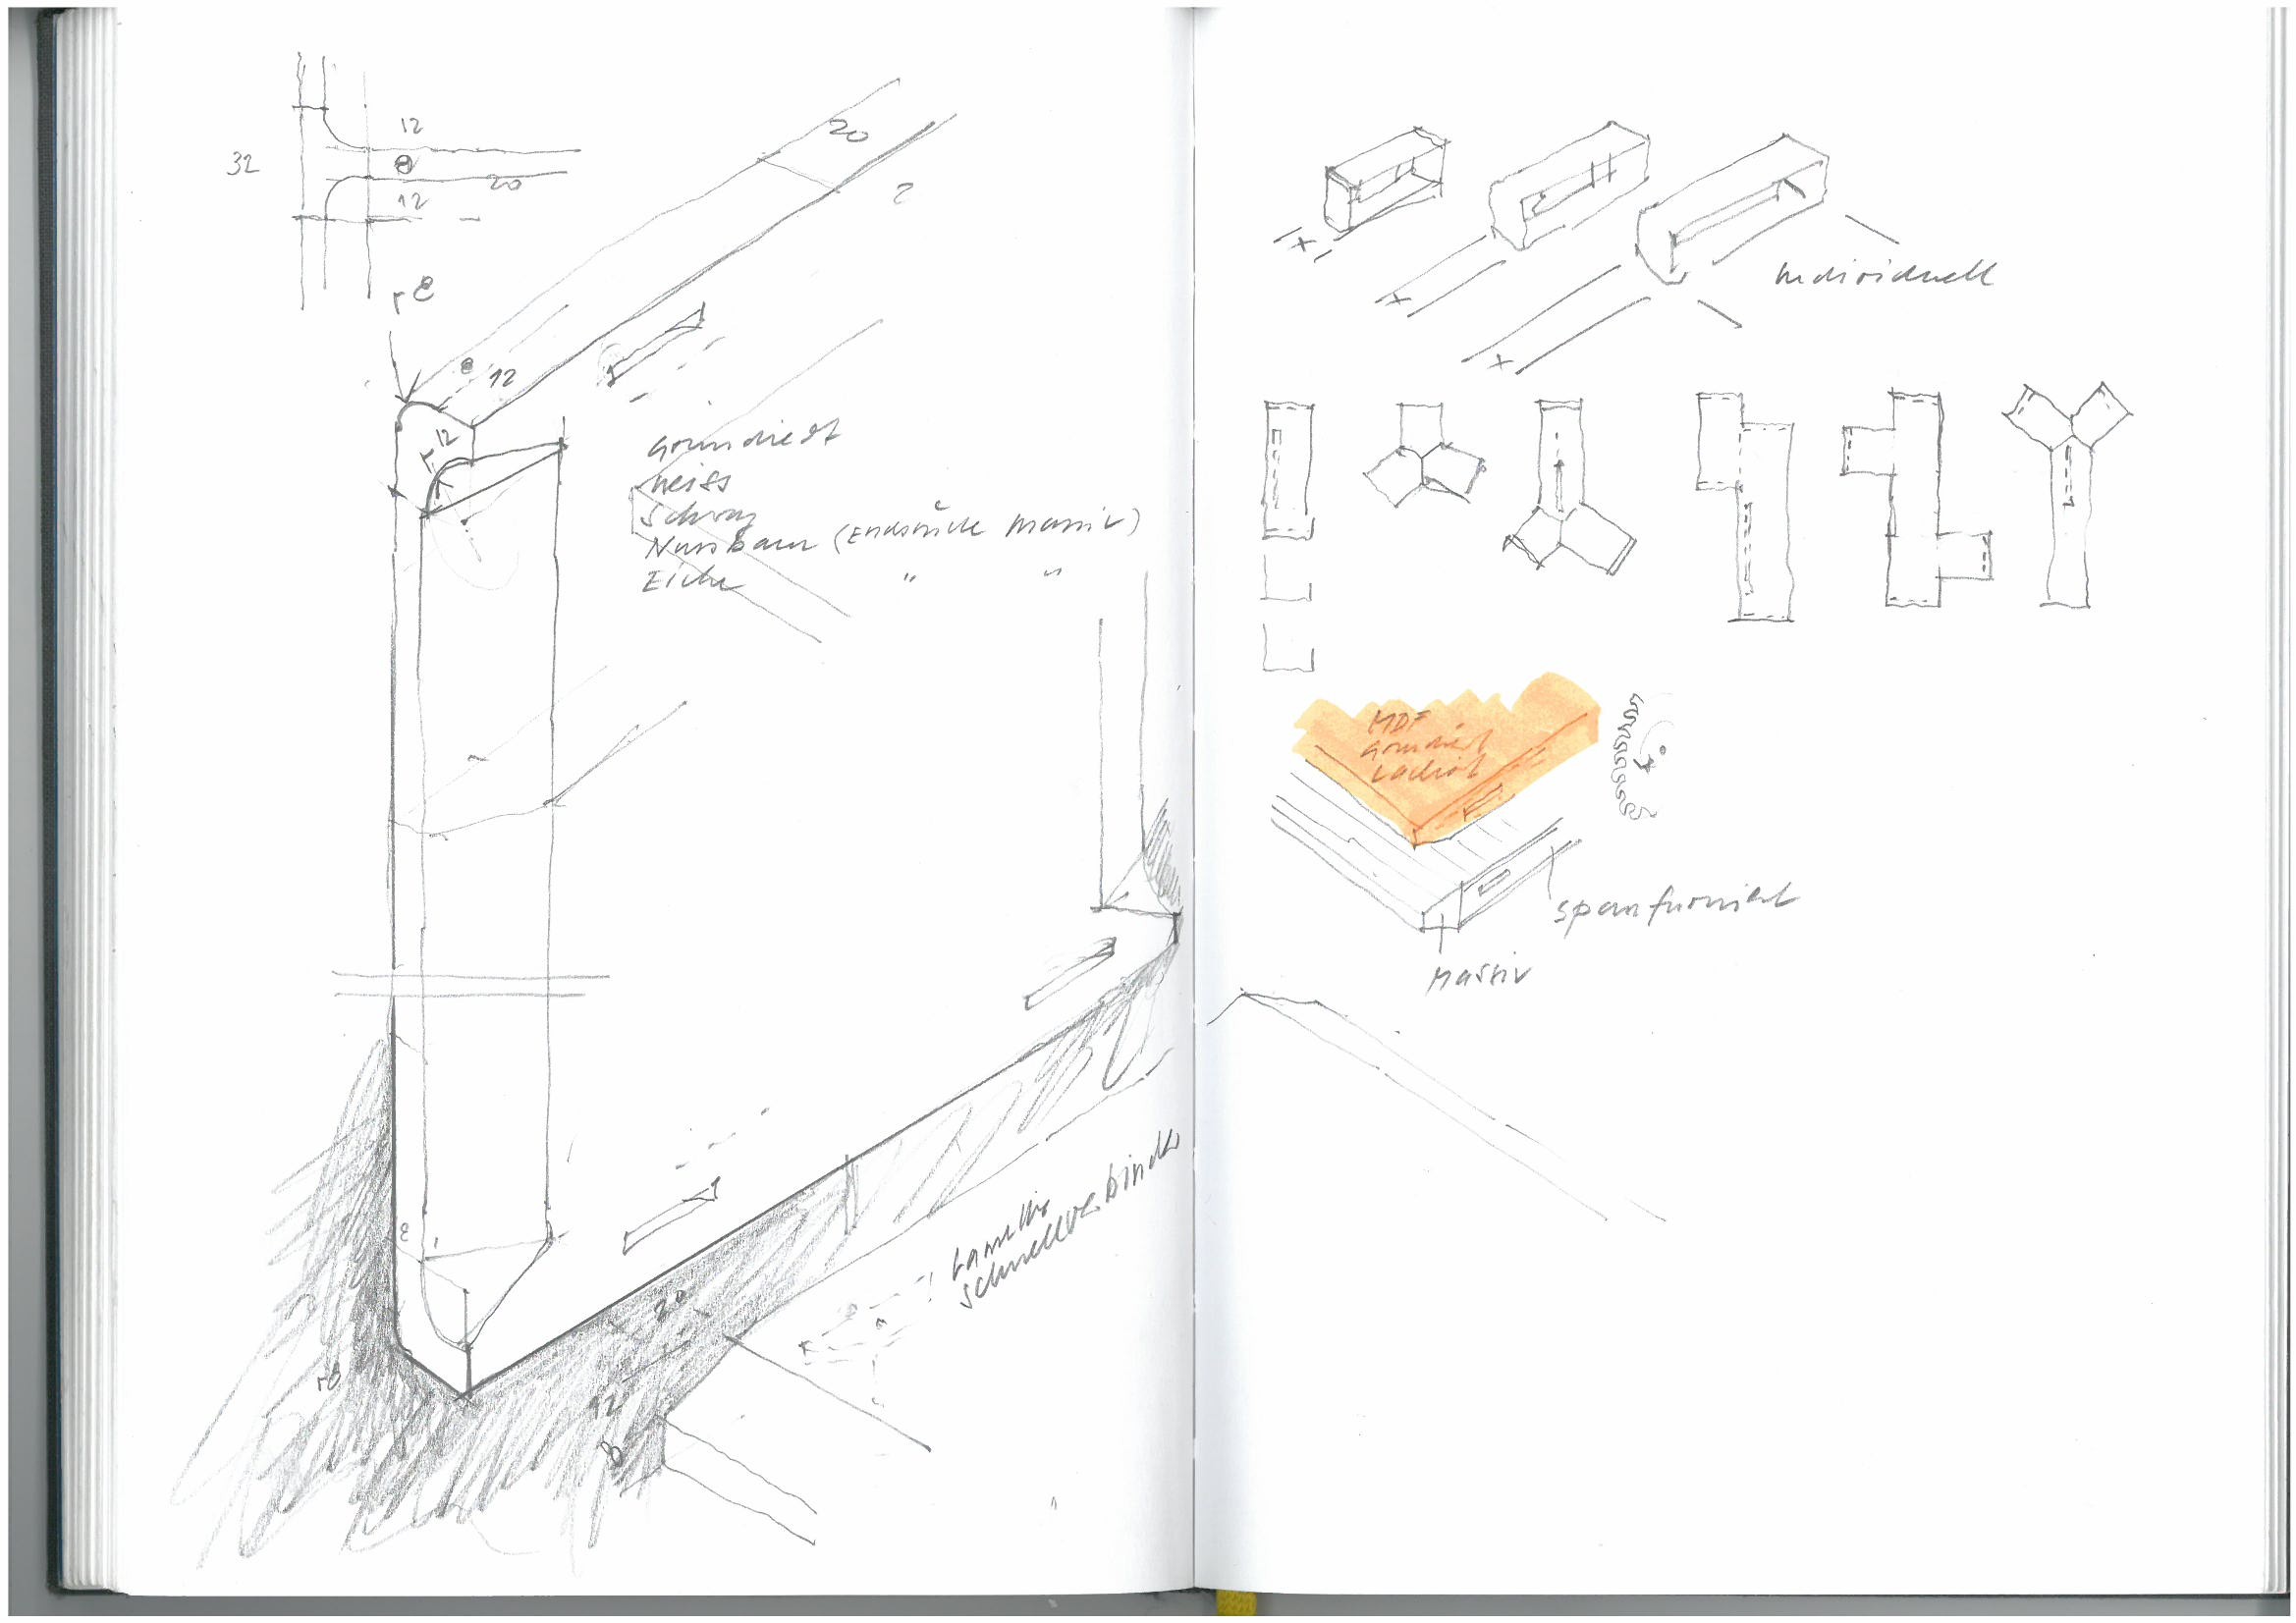 12
32
8
20
12
r 8
20
2
8
12
12
grundiert
weiss
schwarz
Nussbaum (Endstücke massiv)
Eiche " "
8
r8
20
12
8
Lamello
schnellverbinder
individuell
MDF
grundiert
lackiert
span furniert
Massiv